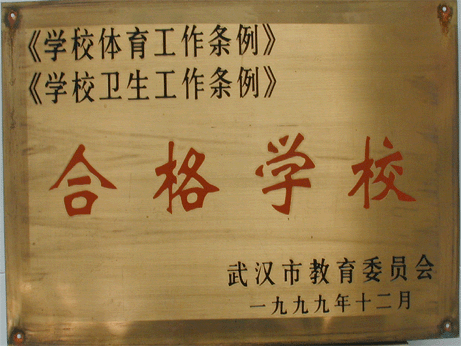 《学校体育工作条例》
《学校卫生工作条例》
合格学校
武汉市教育委员会
一九九九年十二月